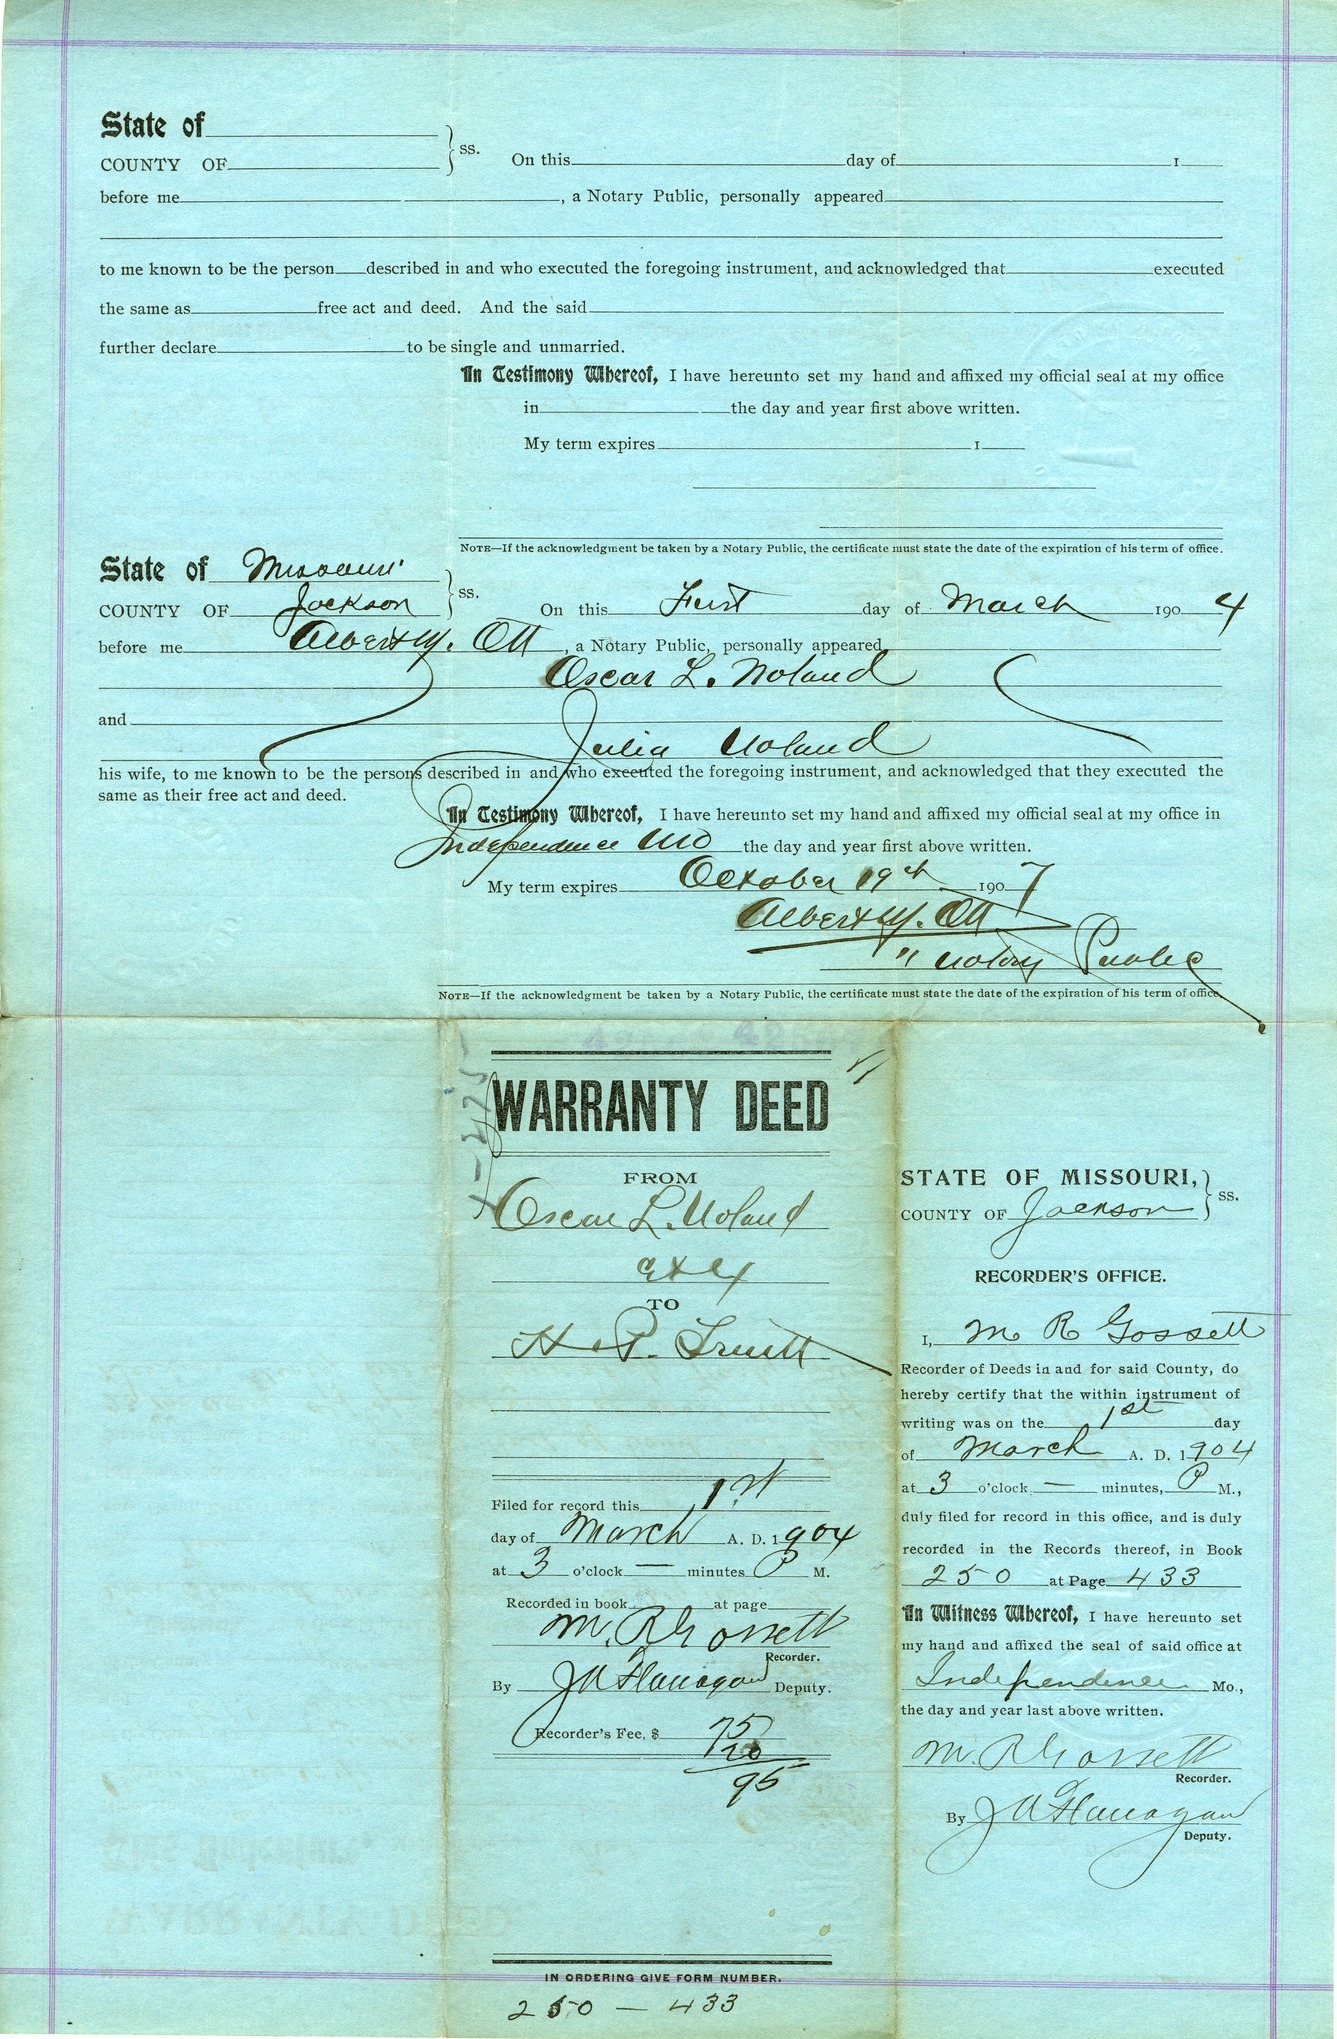 State of
COUNTY OF
ss.
On this day of 1
before me , a Notary Public, personally appeared
to me known to be the person described in and who executed the foregoing instrument, and acknowledged that executed
the same as free act and deed. And the said
further declare to be single and unmarried.
In Testimony Whereof, I have hereunto set my hand and affixed my official seal at my office
in the day and year first above written.
My term expires 1
NOTE—If the acknowledgment be taken by a Notary Public, the certificate must state the date of the expiration of his term of office.
State of Missouri
COUNTY OF Jackson
ss.
On this First day of March 1904
before me Albert M. Ott , a Notary Public, personally appeared
Oscar L. Noland
and
Julia Noland
his wife, to me known to be the persons described in and who executed the foregoing instrument, and acknowledged that they executed the
same as their free act and deed.
In Testimony Whereof, I have hereunto set my hand and affixed my official seal at my office in
Independence Mo the day and year first above written.
My term expires October 19th 1907
Albert M. Ott
Notary Public
NOTE—If the acknowledgment be taken by a Notary Public, the certificate must state the date of the expiration of his term of office.
WARRANTY DEED
FROM
Oscar L. Noland
TO
H. P. Truitt
Filed for record this 1st
day of March A. D. 1904
at 3 o'clock — minutes P M.
Recorded in book at page
M. R. Gossett
Recorder.
By J A Flanagan Deputy.
Recorder's Fee, $ 75
20
95
IN ORDERING GIVE FORM NUMBER.
250 — 433
STATE OF MISSOURI,
COUNTY OF Jackson
ss.
RECORDER'S OFFICE.
I, M R Gossett
Recorder of Deeds in and for said County, do
hereby certify that the within instrument of
writing was on the 1st day
of March A. D. 1904
at 3 o'clock — minutes, P M.,
duly filed for record in this office, and is duly
recorded in the Records thereof, in Book
250 at Page 433
In Witness Whereof, I have hereunto set
my hand and affixed the seal of said office at
Independence Mo.,
the day and year last above written.
M. R Gossett
Recorder.
By J A Flanagan
Deputy.